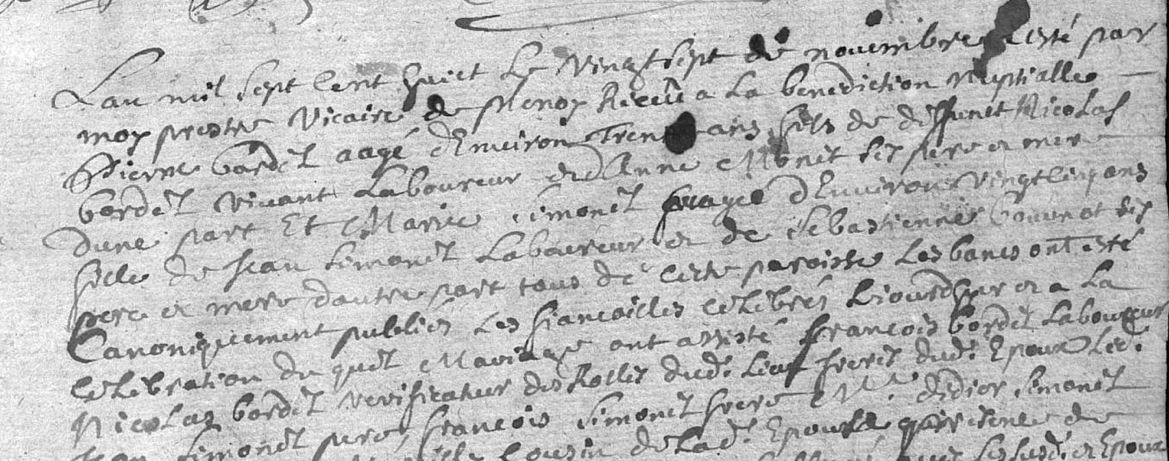 Lan mil sept cent huict Le Vingt sept de novembre a esté par
moy prestre Vicaire de Receu a La benediction Nuptialle
Pierre bordet aagé denviron Trente ans fils de deffunct Nicolas
bordet Vivant Laboureur et danne Monet ses pere et mere
dune part Et Marie Simonet aagee dEnviron Vingt cinq ans
fille de Jean Simonet Laboureur et de Sebastienne ses
pere et mere dautre part tous de ceste paroisse Les bancs ont esté
Canoniquement publiés Les fiancailles celebrés Lejourdhuy et a La
celebration du quel Mariage ont assisté francois bordet Laboureur
Nicolas bordet verificateur des Rolles dud. Lieu freres dud. Epoux Led.
Jean Simonet pere, francois Simonet frere Me. didier Simonet
cousin de Lad. Epouse de